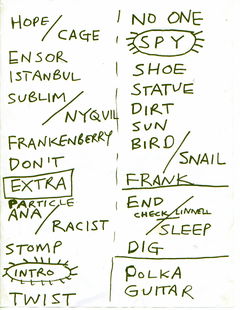 HOPE/
CAGE
ENSOR
ISTANBUL
SUBLIM/
NYQUIL
FRANKENBERRY
DON'T
EXTRA
PARTICLE
ANA/
RACIST
STOMP
INTRO
TWIST
NO ONE
SPY
SHOE
STATUE
DIRT
SUN
BIRD/
SNAIL
FRANK
END
CHECK/LINNELL
SLEEP
DIG
POLKA
GUITAR